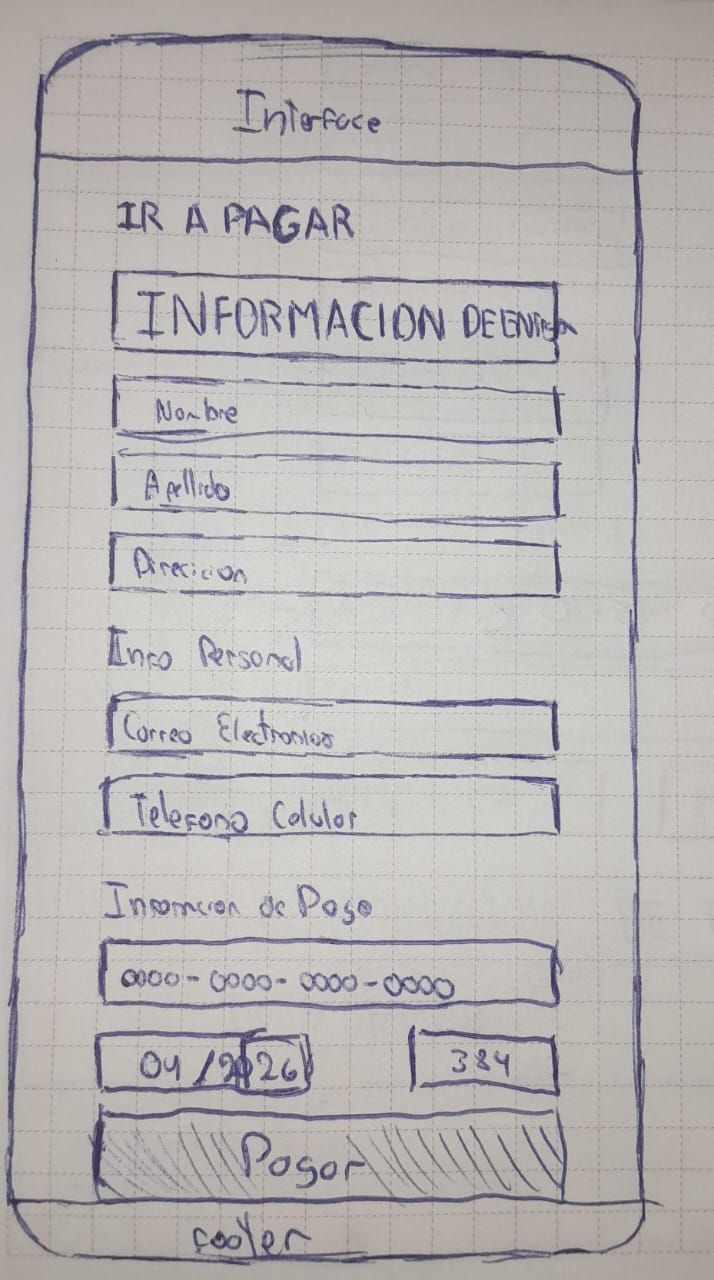 Interface
IR A PAGAR
INFORMACION DE ENTREGA
Nombre
Apellido
Direccion
Info Personal
Correo Electronico
Telefono Celular
Informacion de Pago
0000-0000-0000-0000
04/2026 384
Pagar
footer